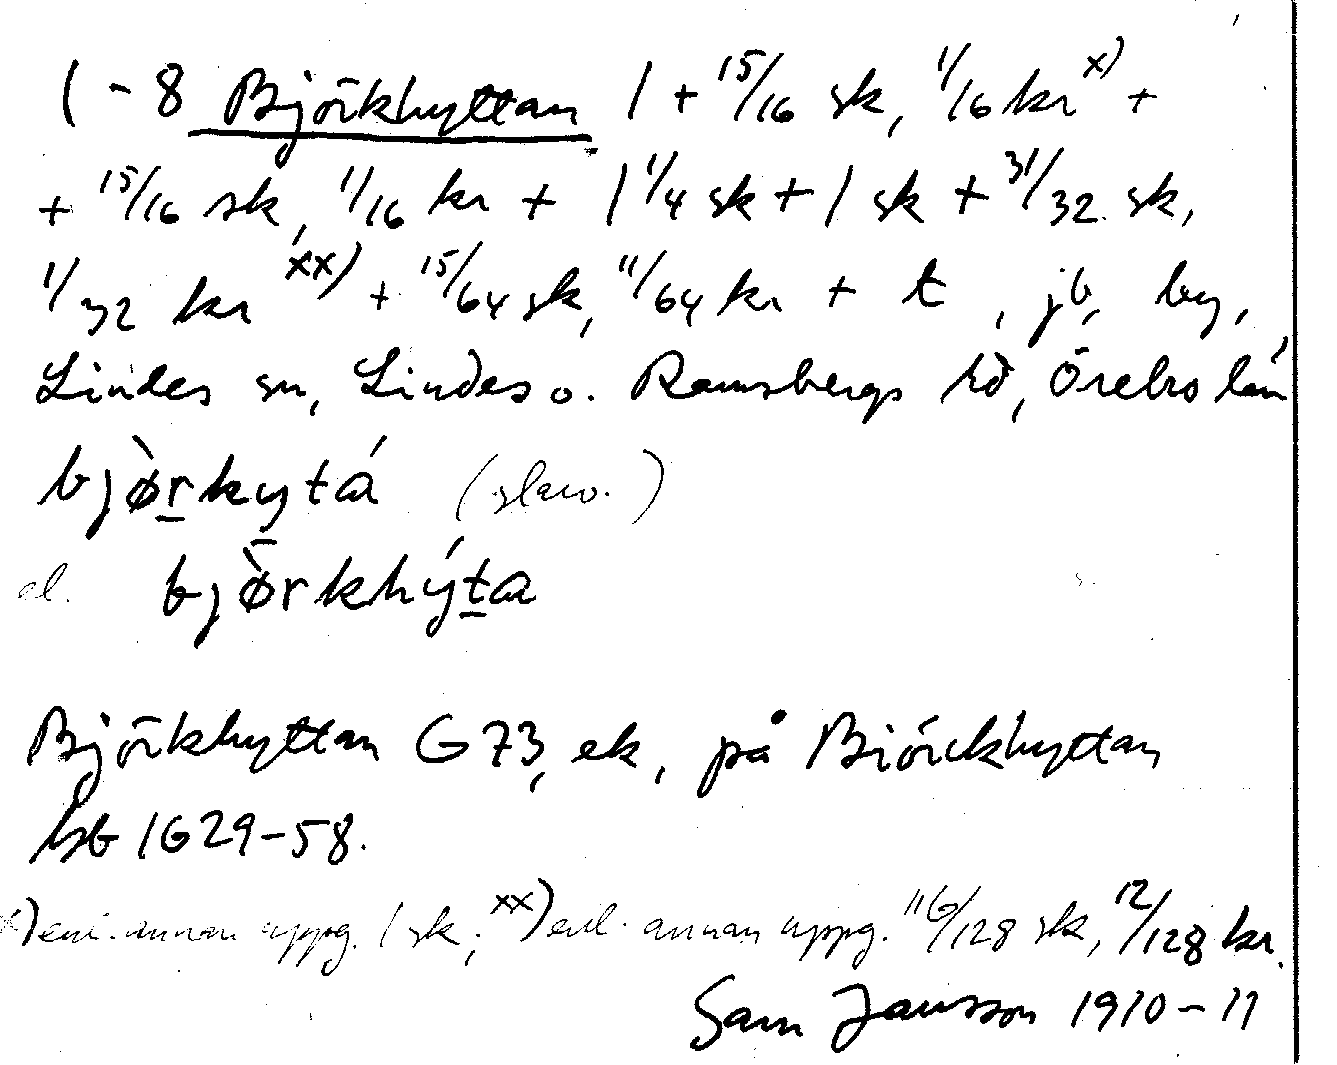 1-8 Björkhyttan 1 + 15/16 sk, 1/16 kr x) +
+ 15/16 sk, 1/16 kr + 1 1/4 sk + 1 sk + 31/32 sk,
1/32 kr xx) + 15/64 sk, 11/64 kr + t, jb, by,
Lindes sn, Lindes o. Ramsbergs hd, Örebro län
bjø̀rkytá (slav.)
el. bjø̀rkhýta
Björkhyttan G73, ek, på Biörckhyttan
hst 1629-58.
x) enl. annan uppg. 1 sk; xx) enl. annan uppg. 116/128 sk, 12/128 kr.
Sam Jansson 1910-11